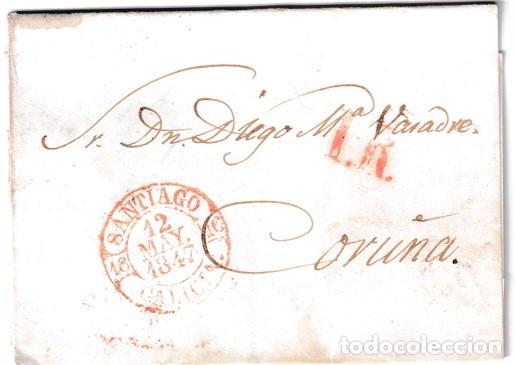 Sr. Dn. Diego Mª Varadre.
1.R.
Coruña.
SANTIAGO
12
MAY.
1847
GALICIA
todocoleccion
todocoleccion.net